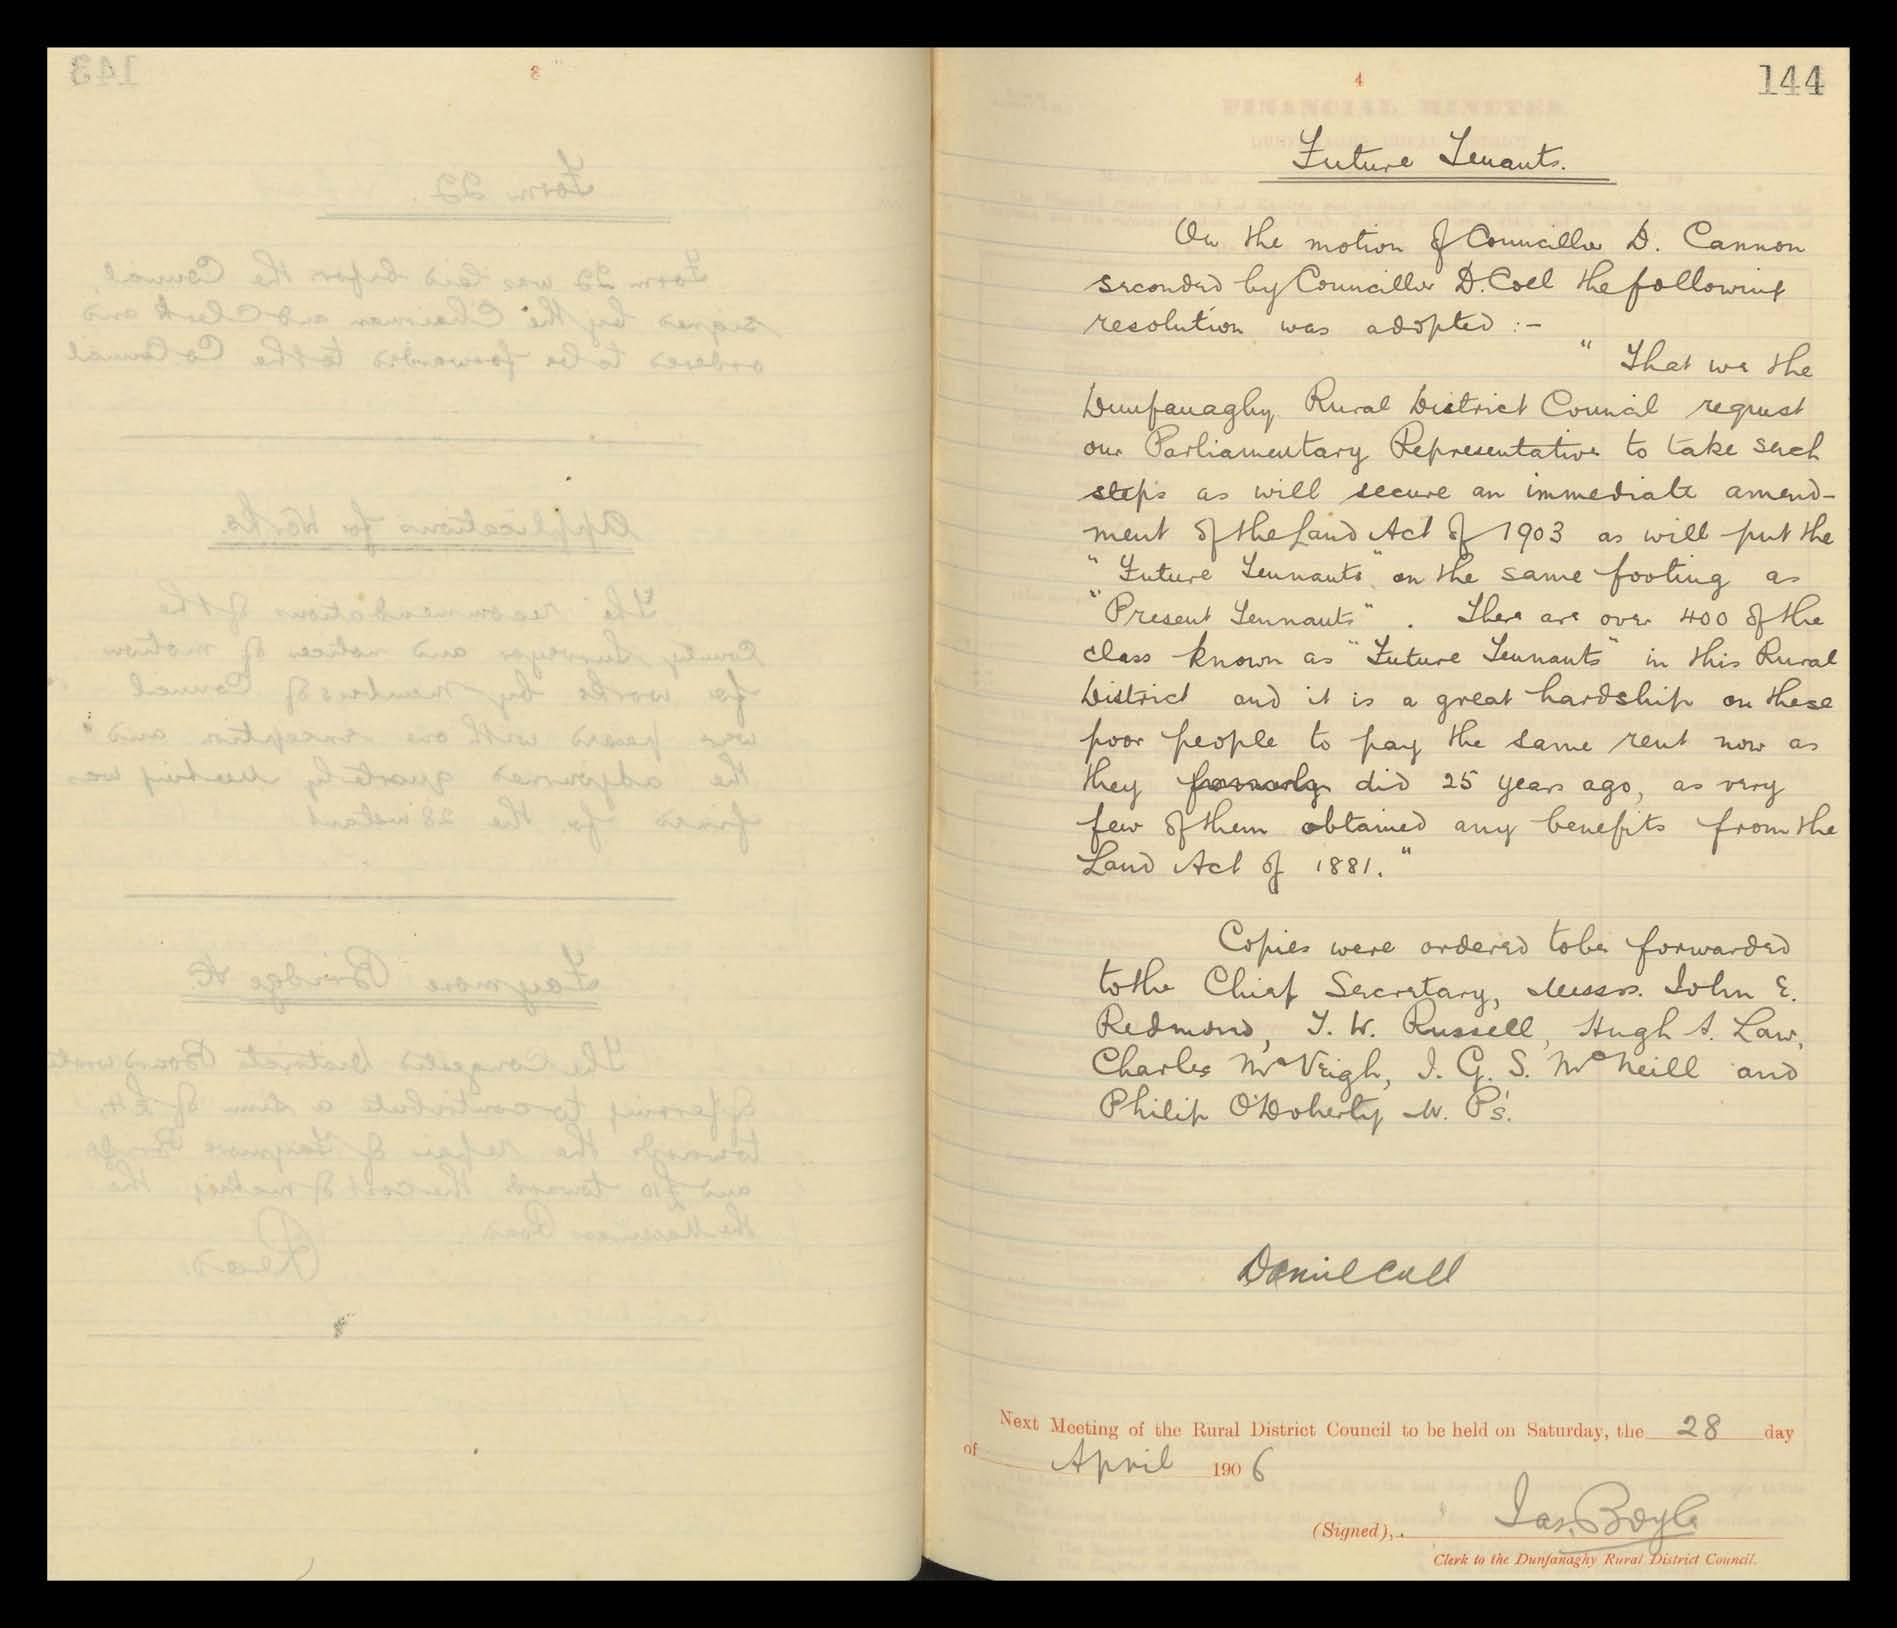 143
3
4
144
Future Tenants.
On the motion of Councillor D. Cannon
seconded by Councillor D. Coll the following
resolution was adopted :-
" That we the
Dunfanaghy Rural District Council request
our Parliamentary Representative to take such
steps as will secure an immediate amend-
ment of the Land Act of 1903 as will put the
"Future Tennants" on the same footing as
"Present Tennants" . There are over 400 of the
class known as "Future Tennants" in this Rural
District and it is a great hardship on these
poor people to pay the same rent now as
they formerly did 25 years ago, as very
few of them obtained any benefits from the
Land Act of 1881."
Copies were ordered to be forwarded
to the Chief Secretary, Messrs. John E.
Redmond, T. W. Russell, Hugh A. Law,
Charles McVeigh, J. G. S. McNeill and
Philip O'Doherty M. P's.
Daniel Coll
Next Meeting of the Rural District Council to be held on Saturday, the 28 day
of April 1906
(Signed), Jas. Boyle
Clerk to the Dunfanaghy Rural District Council.